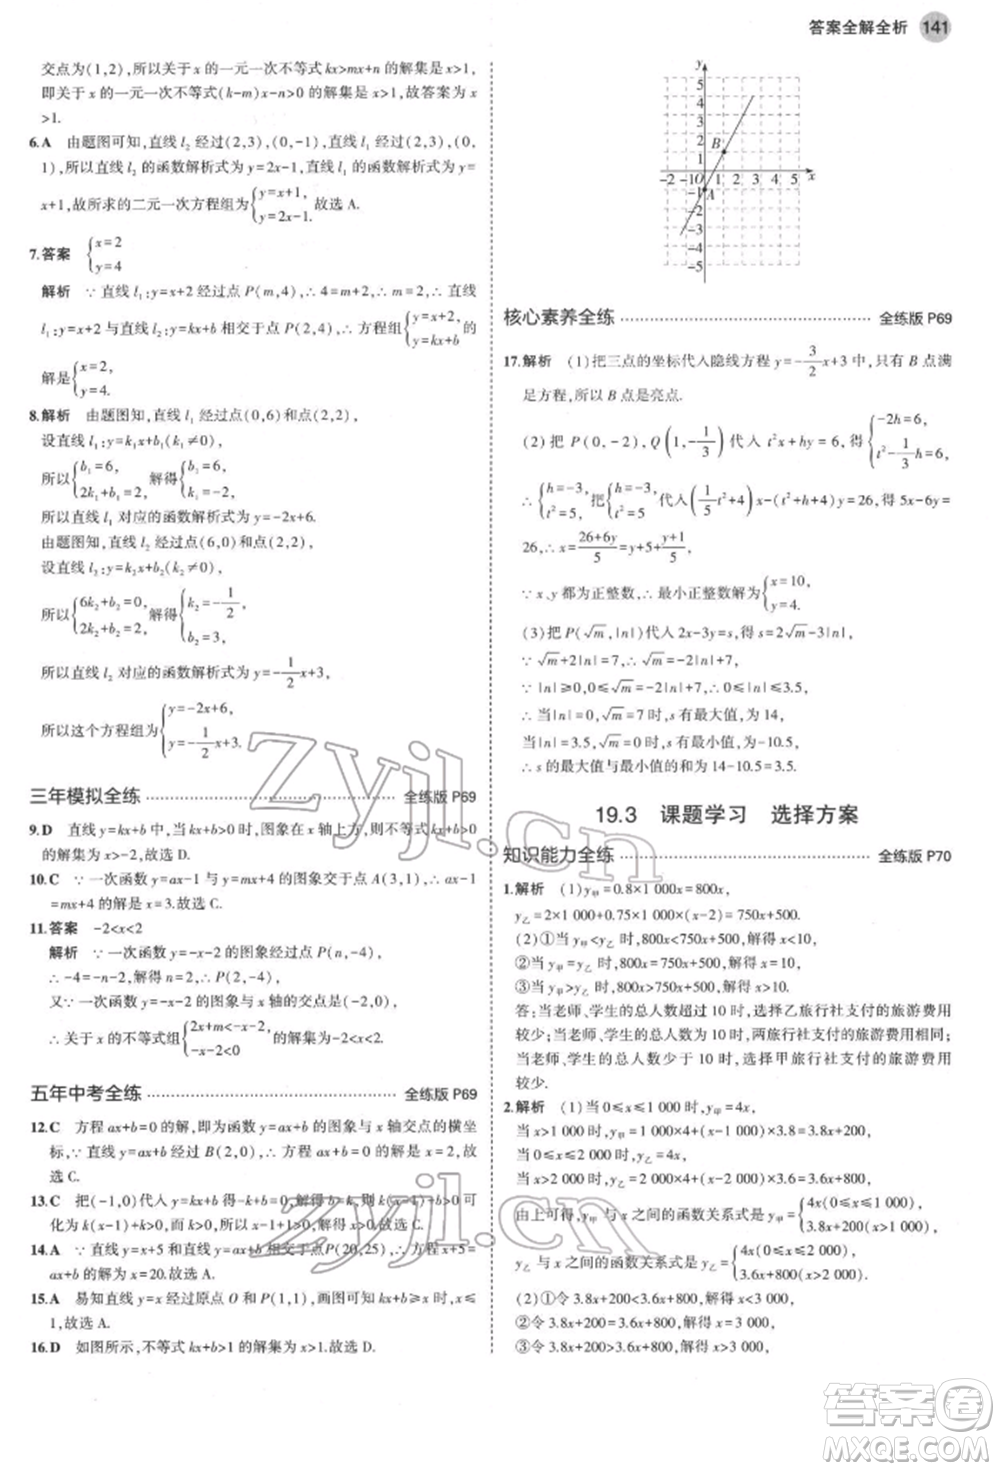 答案全解全析 141
交点为(1,2),所以关于x的一元一次不等式kx>mx+n的解集是x>1,
即关于x的一元一次不等式(k-m)x-n>0的解集是x>1.故答案为x
>1.
6.A 由题图可知,直线l₂经过(2,3),(0,-1),直线l₁经过(2,3),(0,
1),所以直线l₂的函数解析式为y=2x-1,直线l₁的函数解析式为y=
x+1,故所求的二元一次方程组为{y=x+1, y=2x-1.故选A.
7.答案 {x=2 y=4
解析 ∵直线l₁:y=x+2经过点P(m,4),∴4=m+2,∴m=2,∴直线
l₁:y=x+2与直线l₂:y=kx+b相交于点P(2,4),∴方程组{y=x+2, y=kx+b的
解是{x=2, y=4.
8.解析 由题图知,直线l₁经过点(0,6)和点(2,2),
设直线l₁:y=k₁x+b₁(k₁≠0),
所以{b₁=6, 2k₁+b₁=2, 解得{b₁=6, k₁=-2.
所以直线l₁对应的函数解析式为y=-2x+6.
由题图知,直线l₂经过点(6,0)和点(2,2),
设直线l₂:y=k₂x+b₂(k₂≠0),
所以{6k₂+b₂=0, 2k₂+b₂=2, 解得{k₂=-1/2, b₂=3,
所以直线l₂对应的函数解析式为y=-1/2x+3.
所以这个方程组为{y=-2x+6, y=-1/2x+3.
三年模拟全练 全练版P69
9.D 直线y=kx+b中,当kx+b>0时,图象在x轴上方,则不等式kx+b>0
的解集为x>-2,故选D.
10.C ∵一次函数y=ax-1与y=mx+4的图象交于点A(3,1),∴ax-1
=mx+4的解是x=3.故选C.
11.答案 -2<x<2
解析 ∵一次函数y=-x-2的图象经过点P(n,-4),
∴-4=-n-2,解得n=2,∴P(2,-4),
又∵一次函数y=-x-2与x轴的交点是(-2,0),
∴关于x的不等式组{2x+m<-x-2, -x-2<0的解集为-2<x<2.
五年中考全练 全练版P69
12.C 方程ax+b=0的解,即为函数y=ax+b的图象与x轴交点的横坐
标,∵直线y=ax+b过B(2,0),∴方程ax+b=0的解是x=2,故
选C.
13.C 把(-1,0)代入y=kx+b得-k+b=0,解得b=k,则k(x-1)+b>0可
化为k(x-1)+k>0,而k>0,所以x-1+1>0,解得x>0.故选C.
14.A ∵直线y=x+5和直线y=ax+b相交于点P(20,25),∴方程x+5=
ax+b的解为x=20.故选A.
15.A 易知直线y=x经过原点O和P(1,1),画图象可得kx+b≥x的解集为x≤
1,故选A.
16.D 如图所示,不等式kx+b>1的解集为x>1.故选D.
y
5
4
3
2
1
-2 -1 0 1 2 3 4 5 x
-1
-2
-3
-4
-5
A
B
核心素养全练 全练版P69
17.解析 (1)把三点的坐标代入隐线方程y=-3/2x+3中,只有B点满
足方程,所以B点是亮点.
(2)把P(0,-2),Q(1,-1/3)代入t²x+hy=6,得{-2h=6, t²-1/3h=6,
∴{h=-3, t²=5, 把{h=-3, t²=5代入(1/5t²+4)x-(t²+h+4)y=26,得5x-6y=
26,∴x=(26+6y)/5=5+y+(y+1)/5,
∵x、y都为正整数,∴最小正整数解为{x=10, y=4.
(3)把P(√m,|n|)代入2x-3y=s,得s=2√m-3|n|,
∵√m+2|n|=7,∴√m=7-2|n|,∴s=14-7|n|,
∵|n|≥0,0≤√m=7-2|n|,∴0≤|n|≤3.5,
∴当|n|=0,√m=7时,s有最大值,为14,
当|n|=3.5,√m=0时,s有最小值,为-10.5,
∴s的最大值与最小值的和为14-10.5=3.5.
19.3 课题学习 选择方案
知识能力全练 全练版P70
1.解析 (1)y甲=0.8×1 000x=800x,
y乙=2×1 000+0.75×1 000×(x-2)=750x+500.
(2)①当y甲<y乙时,800x<750x+500,解得x<10;
②当y甲=y乙时,800x=750x+500,解得x=10;
③当y甲>y乙时,800x>750x+500,解得x>10.
答:当老师、学生的总人数超过10时,选择乙旅行社支付的旅游费用
较少;当老师、学生的总人数为10时,两旅行社支付的旅游费用相同;
当老师、学生的总人数少于10时,选择甲旅行社支付的旅游费用
较少.
2.解析 (1)当0≤x≤1 000时,y甲=4x,
当x>1 000时,y甲=1 000×4+(x-1 000)×3.8=3.8x+200,
当0≤x≤2 000时,y乙=4x,
当x>2 000时,y乙=2 000×4+(x-2 000)×3.6=3.6x+800,
由上可得,y甲与x之间的函数关系式是y甲={4x(0≤x≤1 000), 3.8x+200(x>1 000),
y乙与x之间的函数关系式是y乙={4x(0≤x≤2 000), 3.6x+800(x>2 000).
(2)①令3.8x+200<3.6x+800,解得x<3 000,
②令3.8x+200=3.6x+800,解得x=3 000,
③令3.8x+200>3.6x+800,解得x>3 000,
zyjl.cn
zyjl.cn
答案圈
MXQE.COM